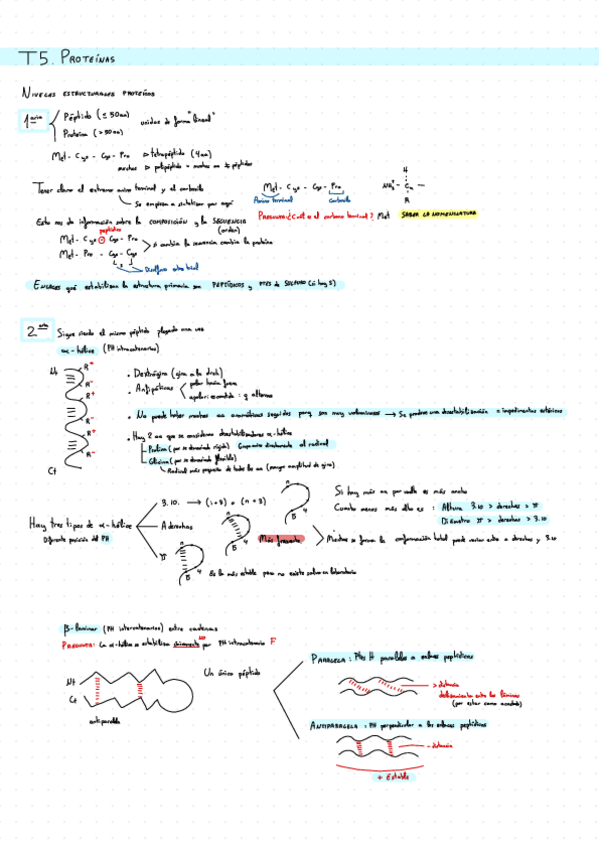 T5. PROTEÍNAS
NIVELES ESTRUCTURALES PROTEÍNAS
1aria
Péptido (≤ 50aa)
Proteína (> 50aa)
unidos de forma "lineal"
Met - Cys - Cys - Pro → tetrapéptido (4aa)
Tener claro el extremo amino terminal y el carboxilo
Se empieza a sintetizar por aquí
Met - Cys - Cys - Pro
Amino terminal
Carboxilo
NH3+ - C -
H
R
PREGUNTA: ¿Cuál es el carboxi terminal? Met
SABER LA NOMENCLATURA
Esto nos da información sobre la COMPOSICIÓN y la SECUENCIA
(orden)
peptídico
Met - Cys - Cys - Pro
Met - Pro - Cys - Cys
si cambia la secuencia cambia la proteína
Disulfuro
ENLACES que estabilizan la estructura primaria son PEPTÍDICOS y PTES de SULFURO (si hay S)
2aria
Sigue siendo el mismo péptido plegado una vez
α-hélice (PH intracatenarios)
Nt
R+
R-
R+
R-
R+
R-
Ct
• Dextrógira (gira a la dcha)
• Antipáticas
polar hacia fuera
apolar: escondida
• No puede haber muchos aa aromáticos seguidos porq son muy voluminosos → Se produce una desestabilización = impedimentos estéricos
• Hay 2 aa que se consideran desestabilizadores α-hélice
Prolina (por ser demasiado rígida)
Glicina (por ser demasiado flexible)
Radical más pequeño de todos los aa (mayor amplitud de giro)
Hay tres tipos de α-hélice
Diferente posición del PH
3.10. → (i+3) = (n+3)
A derechas
π
Más frecuente
Es la más estable pero no existe salvo en laboratorio
Si hay más aa por vuelta es más ancha
Cuanto menos más alta es:
Altura 3.10 > derechas > π
Diámetro π > derechas > 3.10
Mientras se forma la conformación total puede variar entre a derechas y 3.10
β-laminar (PH intercatenarios) entre cadenas
PREGUNTA: La α-hélice se estabiliza únicamente por PH intracatenario F
Nt
Ct
antiparalela
Un único péptido
PARALELA: Ptes H paralelos a enlaces peptídicos
> distancia
deslizamiento entre las láminas
(por estar como acostada)
ANTIPARALELA: PH perpendicular a los enlaces peptídicos
- distancia
+ Estable